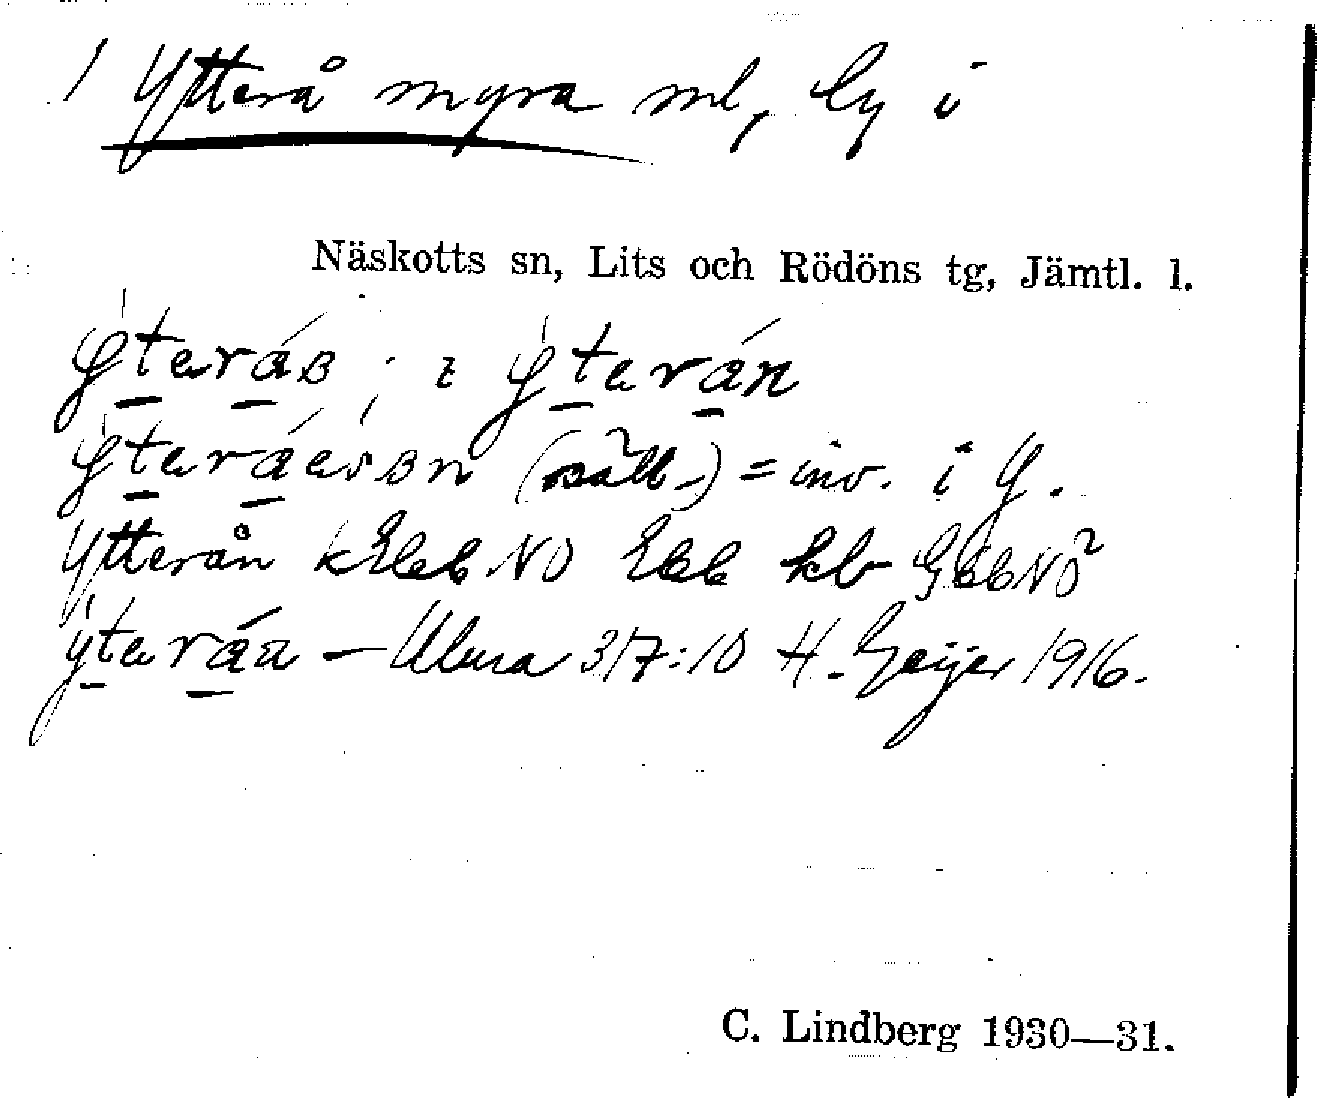 / Ytterå myra ml, by i
Näskotts sn, Lits och Rödöns tg, Jämtl. l.
ýteráɜ ; i ýterán
ýteráesɜn (säll.) = inv. i Y.
Ytterån NO kb
ýterán — Ulma 317:10 H. Geijer 1916.
C. Lindberg 1930—31.